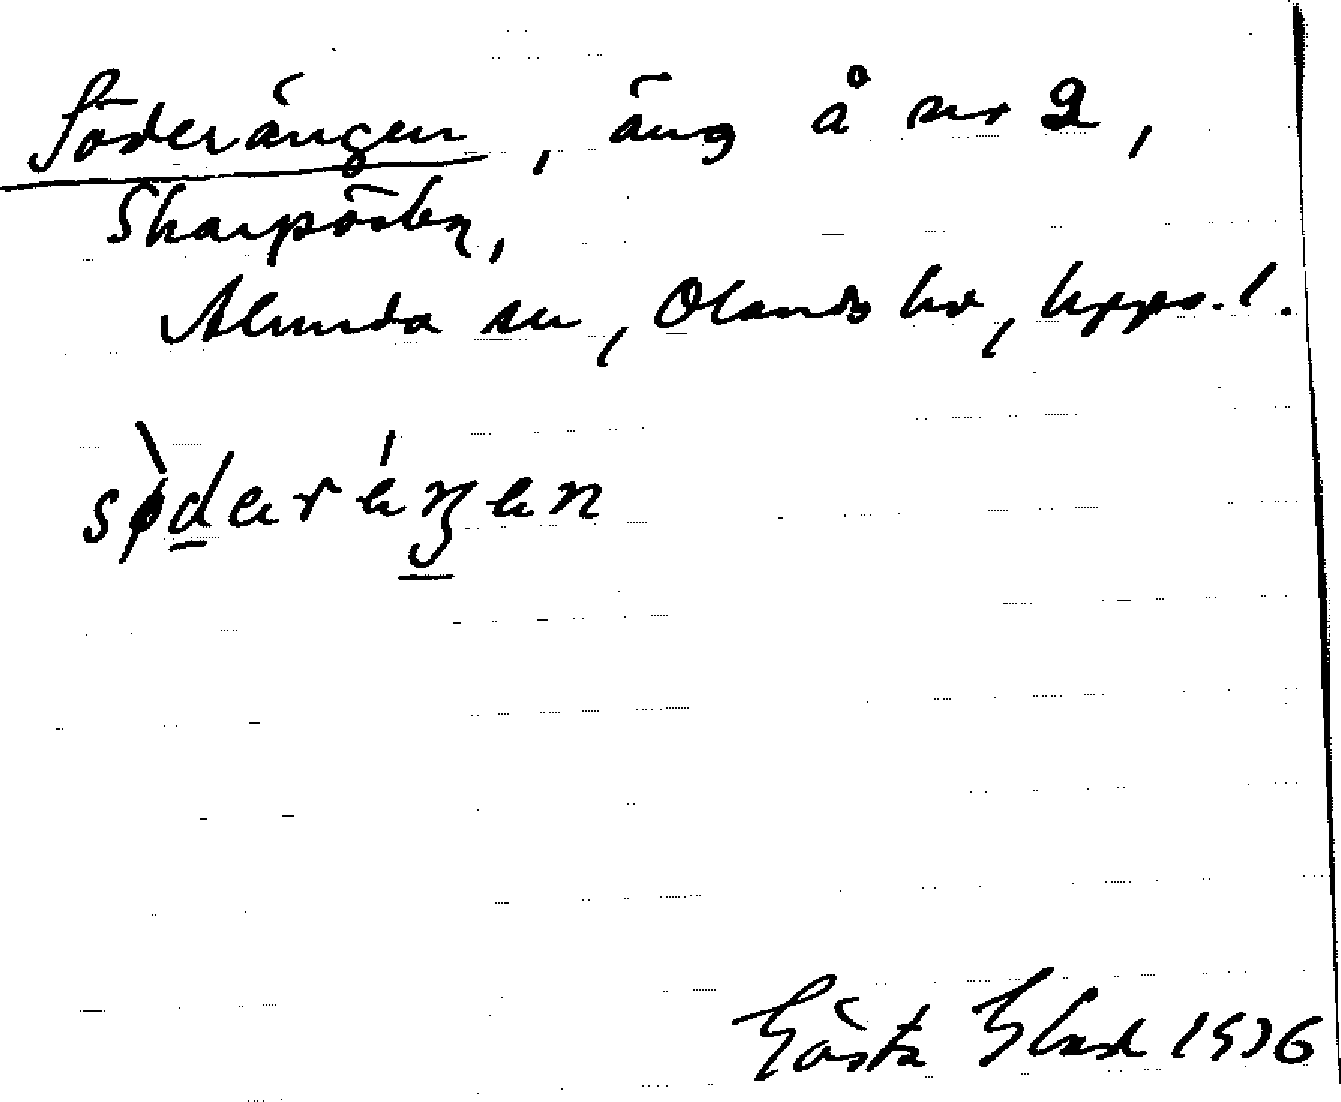 Söderängen, äng å nr 2,
Skarpösby,
Alunda sn, Olands hd, Upps. l.
sø̀deréŋen
Gösta 1936